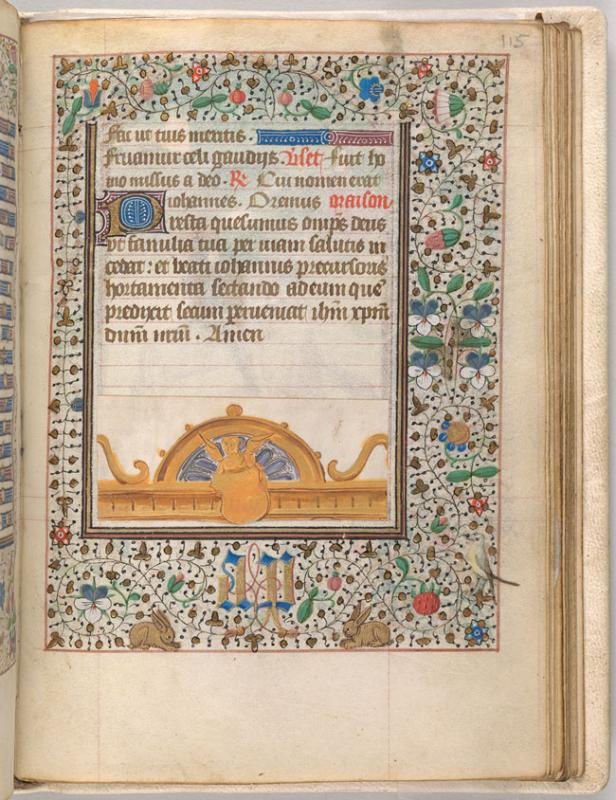 115
ffac ut tuis meritis
fruamur celi gaudijs. Uset fuit ho
mo missus a deo. R Cui nomen erat
iohannes. Oremus oraison
Presta quesumus omps deus
ut familia tua per uiam salutis in
cedat: et beati iohannis precursoris
hortamenta sectando ad eum que
predixit secura perueniat ihm xpm
dnm nrm. Amen